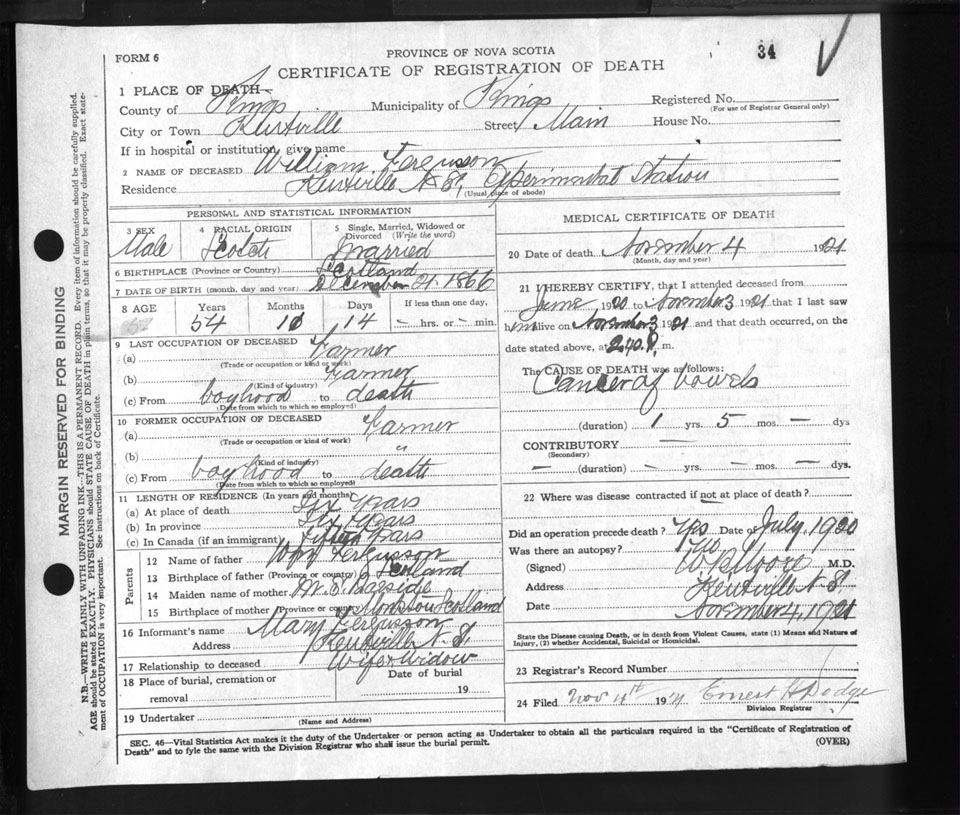 34
PROVINCE OF NOVA SCOTIA
FORM 6
CERTIFICATE OF REGISTRATION OF DEATH
1 PLACE OF DEATH—
County of Kings Municipality of Kings Registered No.
(For use of Registrar General only)
City or Town Kentville Street Main House No.
If in hospital or institution, give name
2 NAME OF DECEASED William Fergusson
Residence Kentville N.S., Experimental Station
(Usual place of abode)
PERSONAL AND STATISTICAL INFORMATION
3 SEX Male
4 RACIAL ORIGIN Scotch
5 Single, Married, Widowed or Divorced (Write the word) Married
6 BIRTHPLACE (Province or Country) Scotland
7 DATE OF BIRTH (month, day and year) December 21. 1866
8 AGE Years Months Days If less than one day,
54 10 14 — hrs. or — min.
9 LAST OCCUPATION OF DECEASED
(a) Farmer
(Trade or occupation or kind of work)
(b) Farmer
(Kind of industry)
(c) From boyhood to death
(Date from which to which so employed)
10 FORMER OCCUPATION OF DECEASED
(a) Farmer
(Trade or occupation or kind of work)
(b) "
(Kind of industry)
(c) From boyhood to death
(Date from which to which so employed)
11 LENGTH OF RESIDENCE (In years and months)
(a) At place of death Six Years
(b) In province Six Years
(c) In Canada (if an immigrant) Fifteen Years
Parents
12 Name of father Fergusson
13 Birthplace of father (Province or country) Scotland
14 Maiden name of mother
15 Birthplace of mother (Province or country) Scotland
16 Informant's name Mary Fergusson
Address Kentville N.S.
17 Relationship to deceased Wife & Widow
18 Place of burial, cremation or removal
Date of burial
19
19 Undertaker
(Name and Address)
MEDICAL CERTIFICATE OF DEATH
20 Date of death November 4 1921
(Month, day and year)
21 I HEREBY CERTIFY, that I attended deceased from
June 1920 to November 3 1921 that I last saw
him alive on November 3 1921 and that death occurred, on the
date stated above, at 2.40. P. m.
The CAUSE OF DEATH was as follows:
Cancer of bowels
(duration) 1 yrs. 5 mos. — dys
CONTRIBUTORY —
(Secondary)
— (duration) — yrs. — mos. — dys.
22 Where was disease contracted if not at place of death?
Did an operation precede death? Yes Date of July, 1920
Was there an autopsy? No
(Signed) Moore M.D.
Address Kentville N.S.
Date November 4, 1921
State the Disease causing Death, or in death from Violent Causes, state (1) Means and Nature of
Injury, (2) whether Accidental, Suicidal or Homicidal.
23 Registrar's Record Number
24 Filed Nov 4th 1921 Ernest H Dodge
Division Registrar
SEC. 46—Vital Statistics Act makes it the duty of the Undertaker or person acting as Undertaker to obtain all the particulars required in the "Certificate of Registration of
Death" and to fyle the same with the Division Registrar who shall issue the burial permit. (OVER)
MARGIN RESERVED FOR BINDING
N.B.—WRITE PLAINLY WITH UNFADING INK—THIS IS A PERMANENT RECORD. Every item of information should be carefully supplied.
AGE should be stated EXACTLY. PHYSICIANS should STATE CAUSE OF DEATH in plain terms, so that it may be properly classified. Exact state-
ment of OCCUPATION is very important. See instructions on back of Certificate.